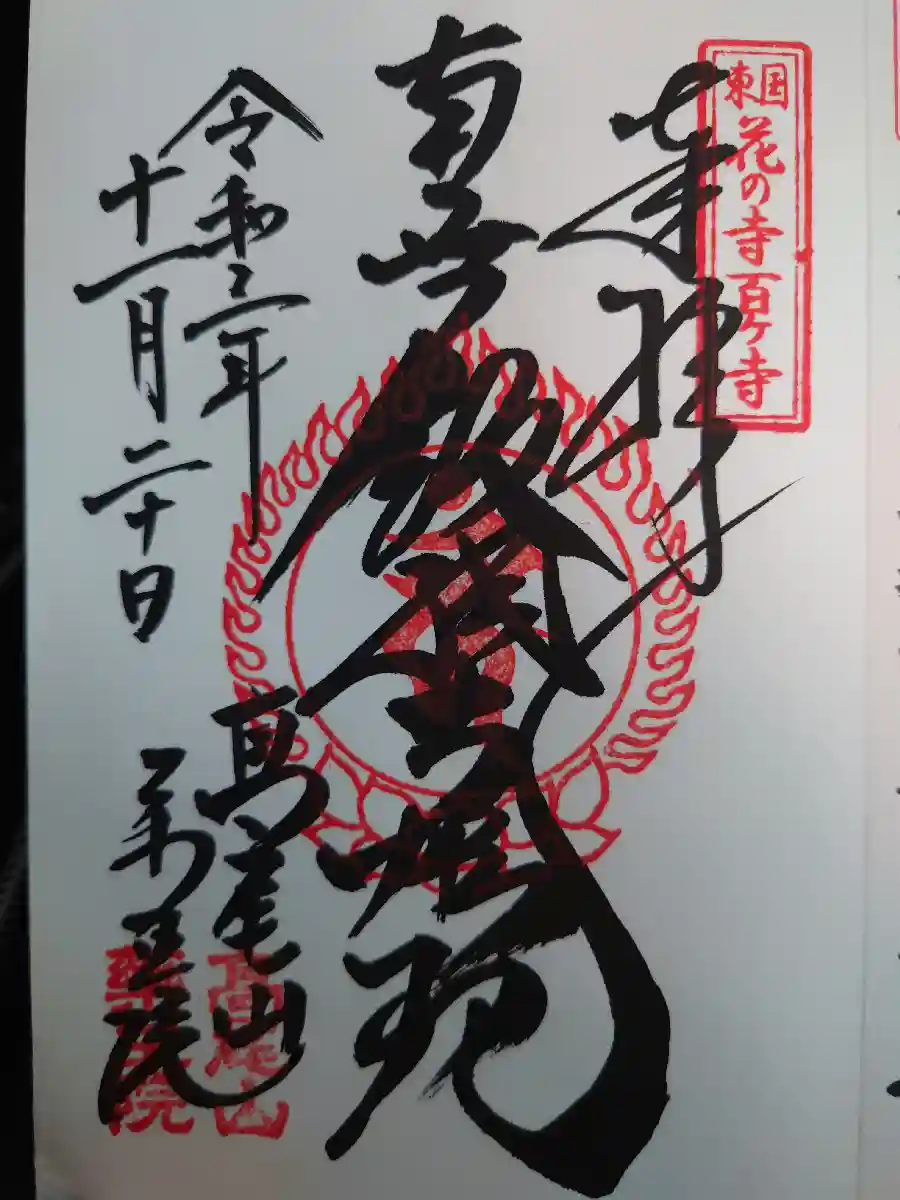 東国花の寺百ヶ寺
奉拝
南無
権現
令和三年
十一月二十日
高尾山
薬王院
高尾山
薬王院